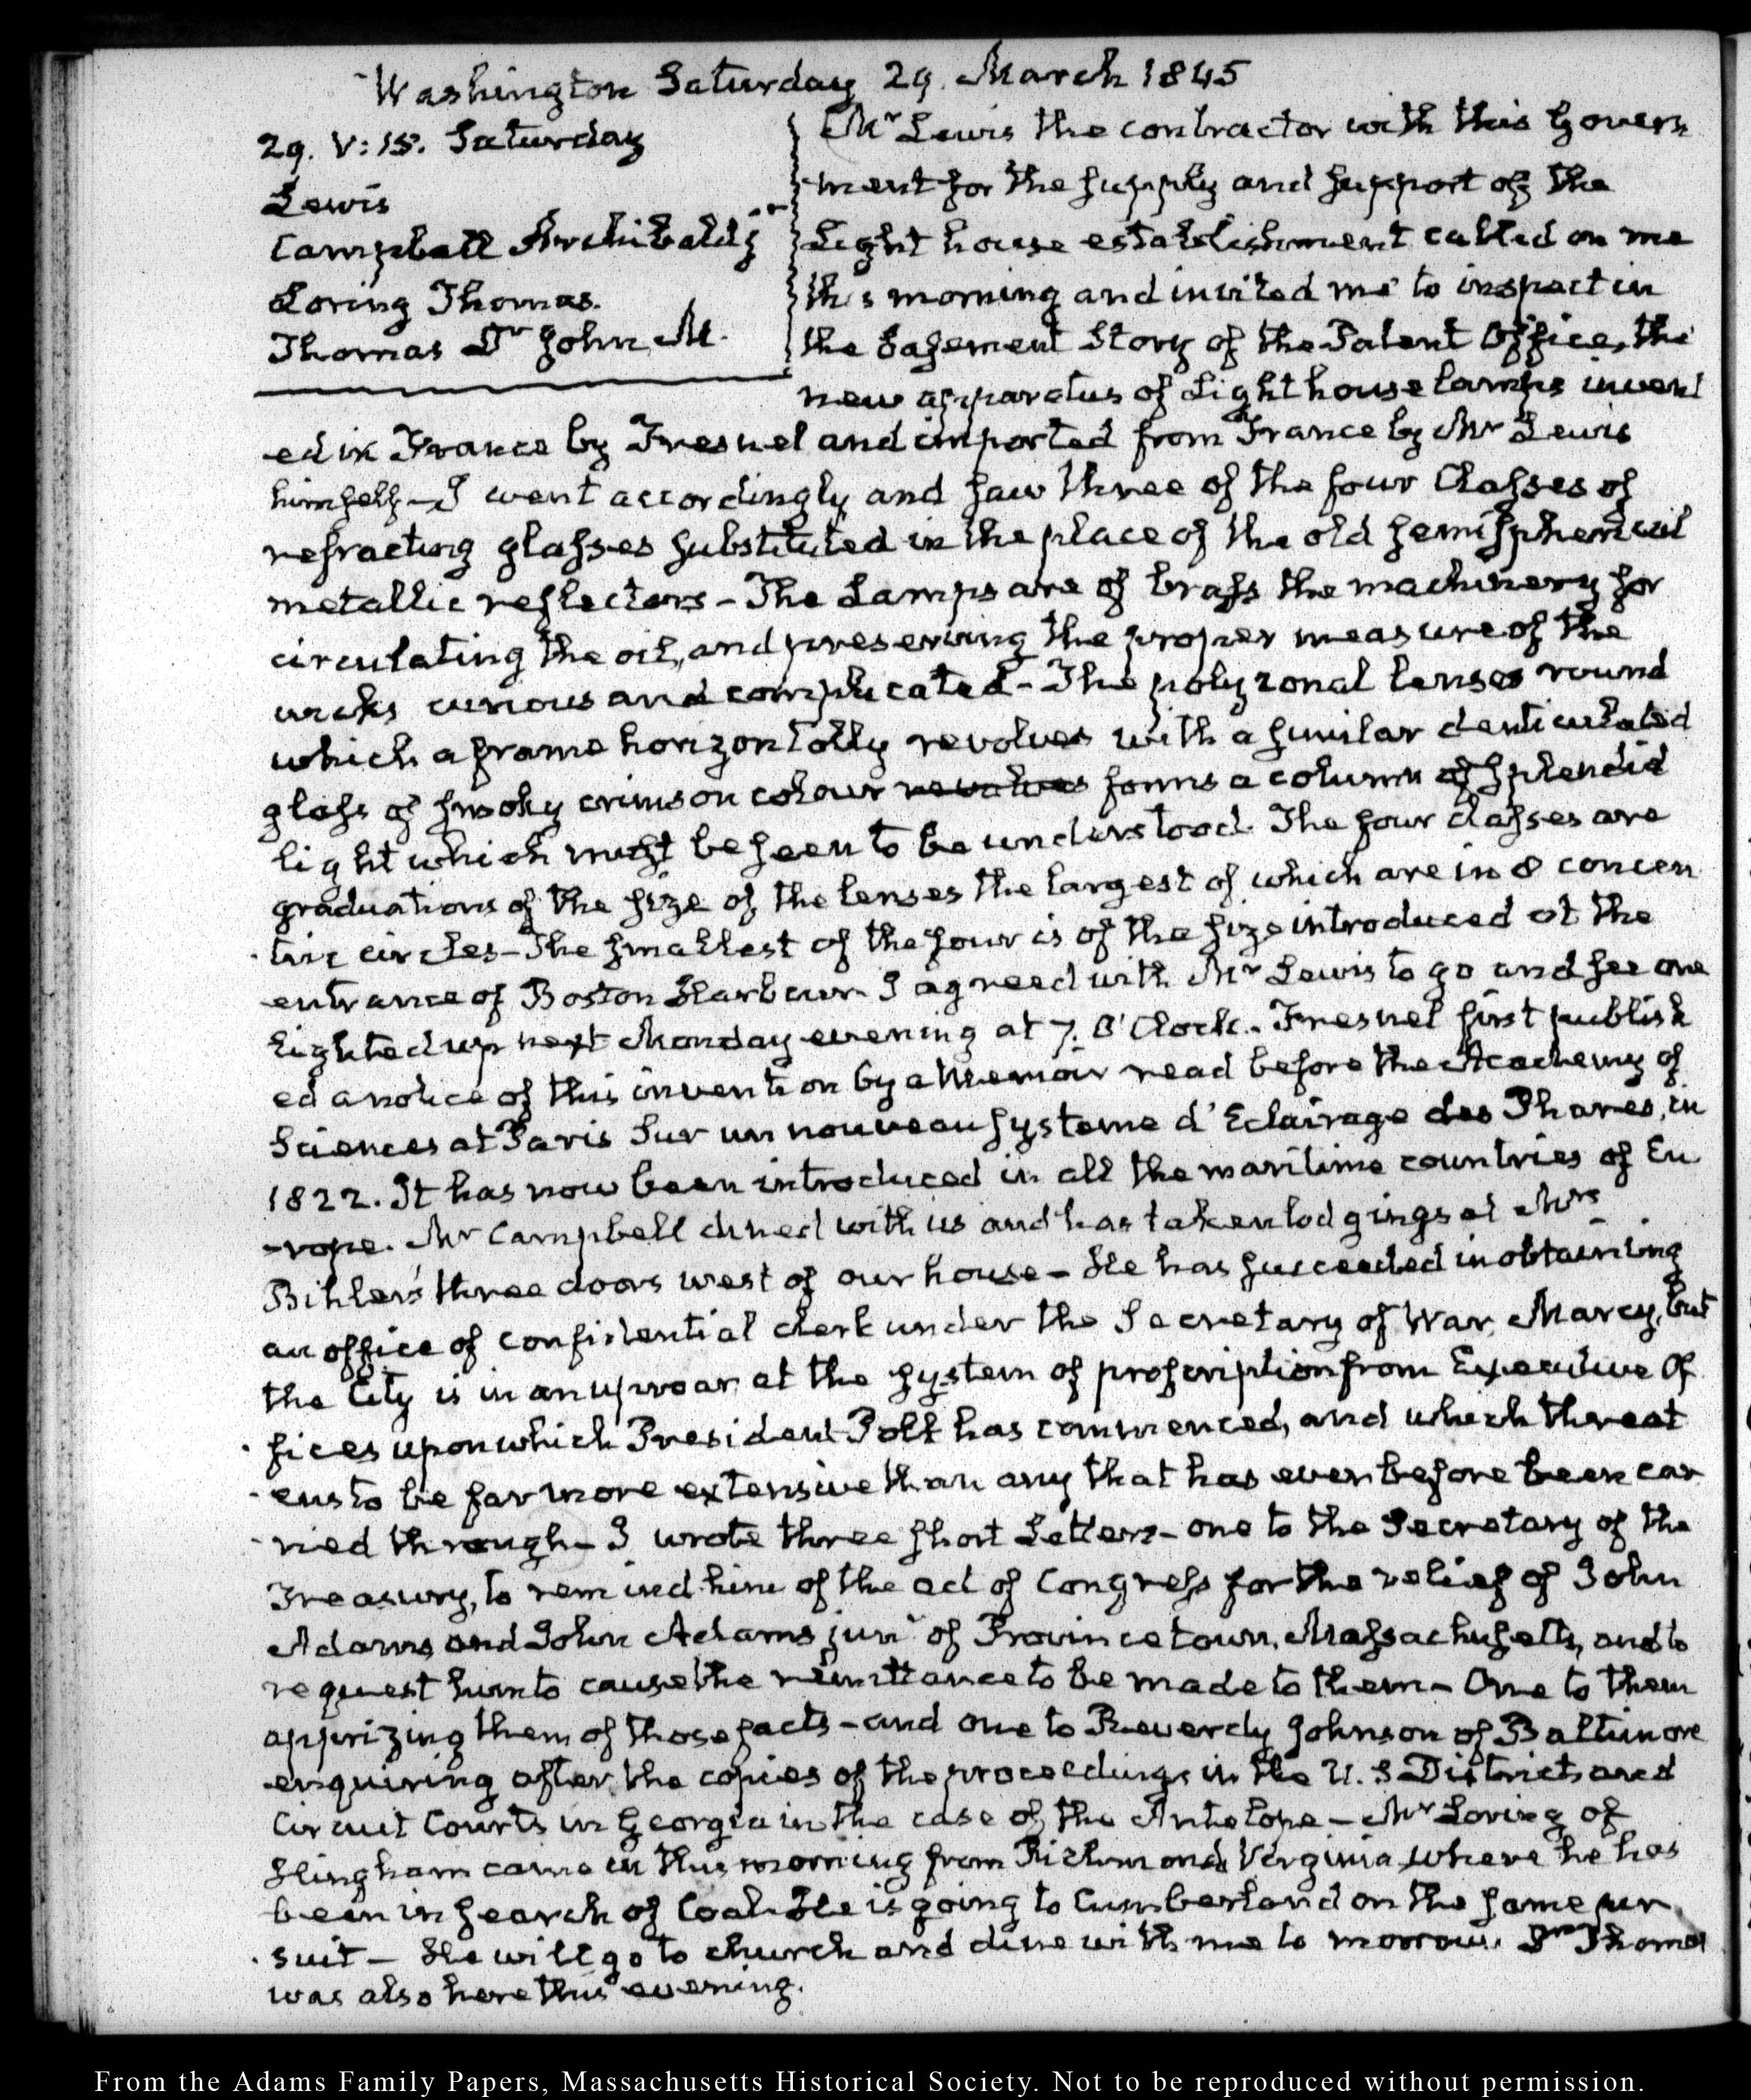 Washington Saturday 29. March 1845
29. V:15. Saturday
Lewis
Campbell Archibald
Loring Thomas.
Thomas Dr John M.
Mr Lewis the contractor with this Govern
ment for the supply and support of the
Light house establishment called on me
this morning and invited me to inspect in
the basement Story of the Patent Office, the
new apparatus of Light house lamps invent
ed in France by Fresnel and imported from France by Mr Lewis
himself – I went accordingly and saw three of the four Classes of
refracting glasses substituted in the place of the old hemispherical
metallic reflectors – The Lamps are of brass the machinery for
circulating the oil, and preserving the proper measure of the
wicks curious and complicated – The polyzonal lenses round
which a frame horizontally revolves with a similar denticulated
glass of smoky crimson colour revolves forms a column of splendid
light which must be seen to be understood. The four classes are
graduations of the size of the lenses the largest of which are in 8 concen
tric circles – The smallest of the four is of the size introduced at the
entrance of Boston Harbour. I agreed with Mr Lewis to go and see one
lighted up next Monday evening at 7. O'Clock. – Fresnel first publish
ed a notice of this invention by a Memoir read before the Academy of
Sciences at Paris Sur un nouveau systeme d'Eclairage des Phares, in
1822. It has now been introduced in all the maritime countries of Eu
-rope. Mr Campbell dined with us and has taken lodgings at Mrs
Bihler's three doors west of our house – He has succeeded in obtaining
an office of confidential clerk under the Secretary of War, Marcy, but
the City is in an uproar at the system of proscription from Executive Of
fices upon which President Polk has commenced, and which threat
ens to be far more extensive than any that has ever before been car
-ried through – I wrote three short Letters – one to the Secretary of the
Treasury, to remind him of the act of Congress for the relief of John
Adams and John Adams junr of Provincetown, Massachusetts, and to
request him to cause the remittance to be made to them – One to them
apprizing them of those facts – and one to Reverdy Johnson of Baltimore
enquiring after the copies of the proceedings in the U. S District and
Circuit Courts in Georgia in the case of the Antelope – Mr Loring of
Hingham came in this morning from Richmond, Virginia where he has
been in search of Coal. He is going to Cumberland on the same pur
suit – He will go to church and dine with me to morrow. Dr Thomas
was also here this evening.
From the Adams Family Papers, Massachusetts Historical Society. Not to be reproduced without permission.